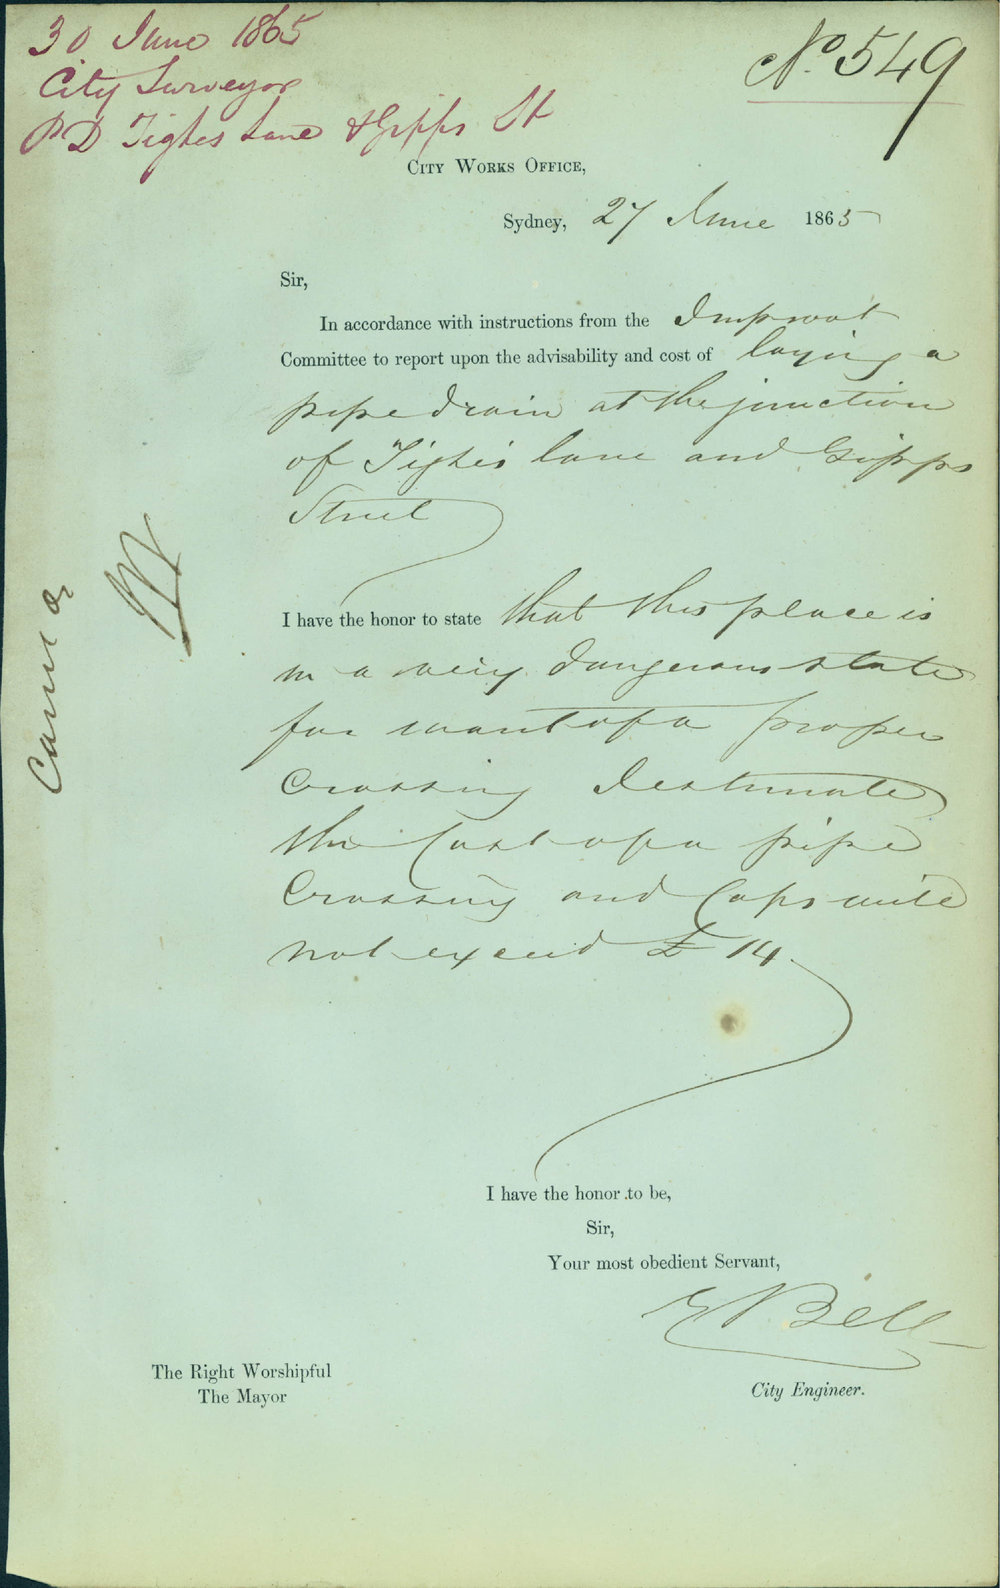 30 June 1865
City Surveyor
PD Tighes Lane & Gipps St
No. 549
City Works Office,
Sydney, 27 June 1865
Sir,
In accordance with instructions from the Impvt
Committee to report upon the advisability and cost of laying a
pipe drain at the junction
of Tighes lane and Gipps
Street
I have the honor to state that this place is
in a very dangerous state
for want of a proper
Crossing I estimate
the Cost of a pipe
Crossing and Caps will
not exceed £14
I have the honor to be,
Sir,
Your most obedient Servant,
E Bell
City Engineer.
The Right Worshipful
The Mayor